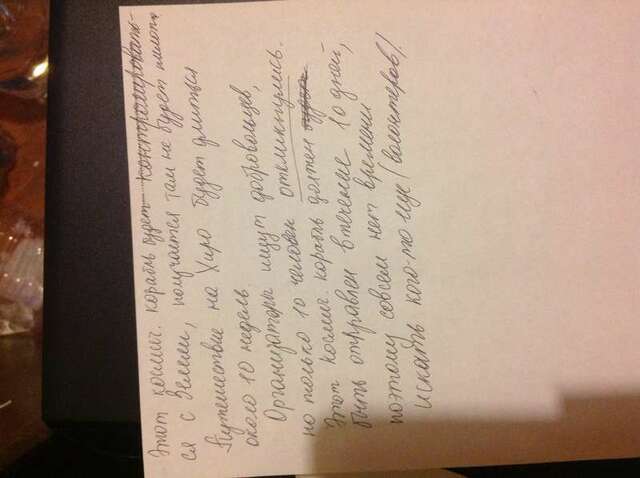 Этот космич. корабль будет контролировать-
ся с Земли, получается там не будет пилота
Путешествие на Хиро будет длиться
около 10 недель
Организаторы ищут добровольцев,
но только 10 человек откликнулись.
Этот космич. корабль должен
быть отправлен в течение 10 дней,
поэтому совсем нет времени
искать кого-то еще (волонтеров)!